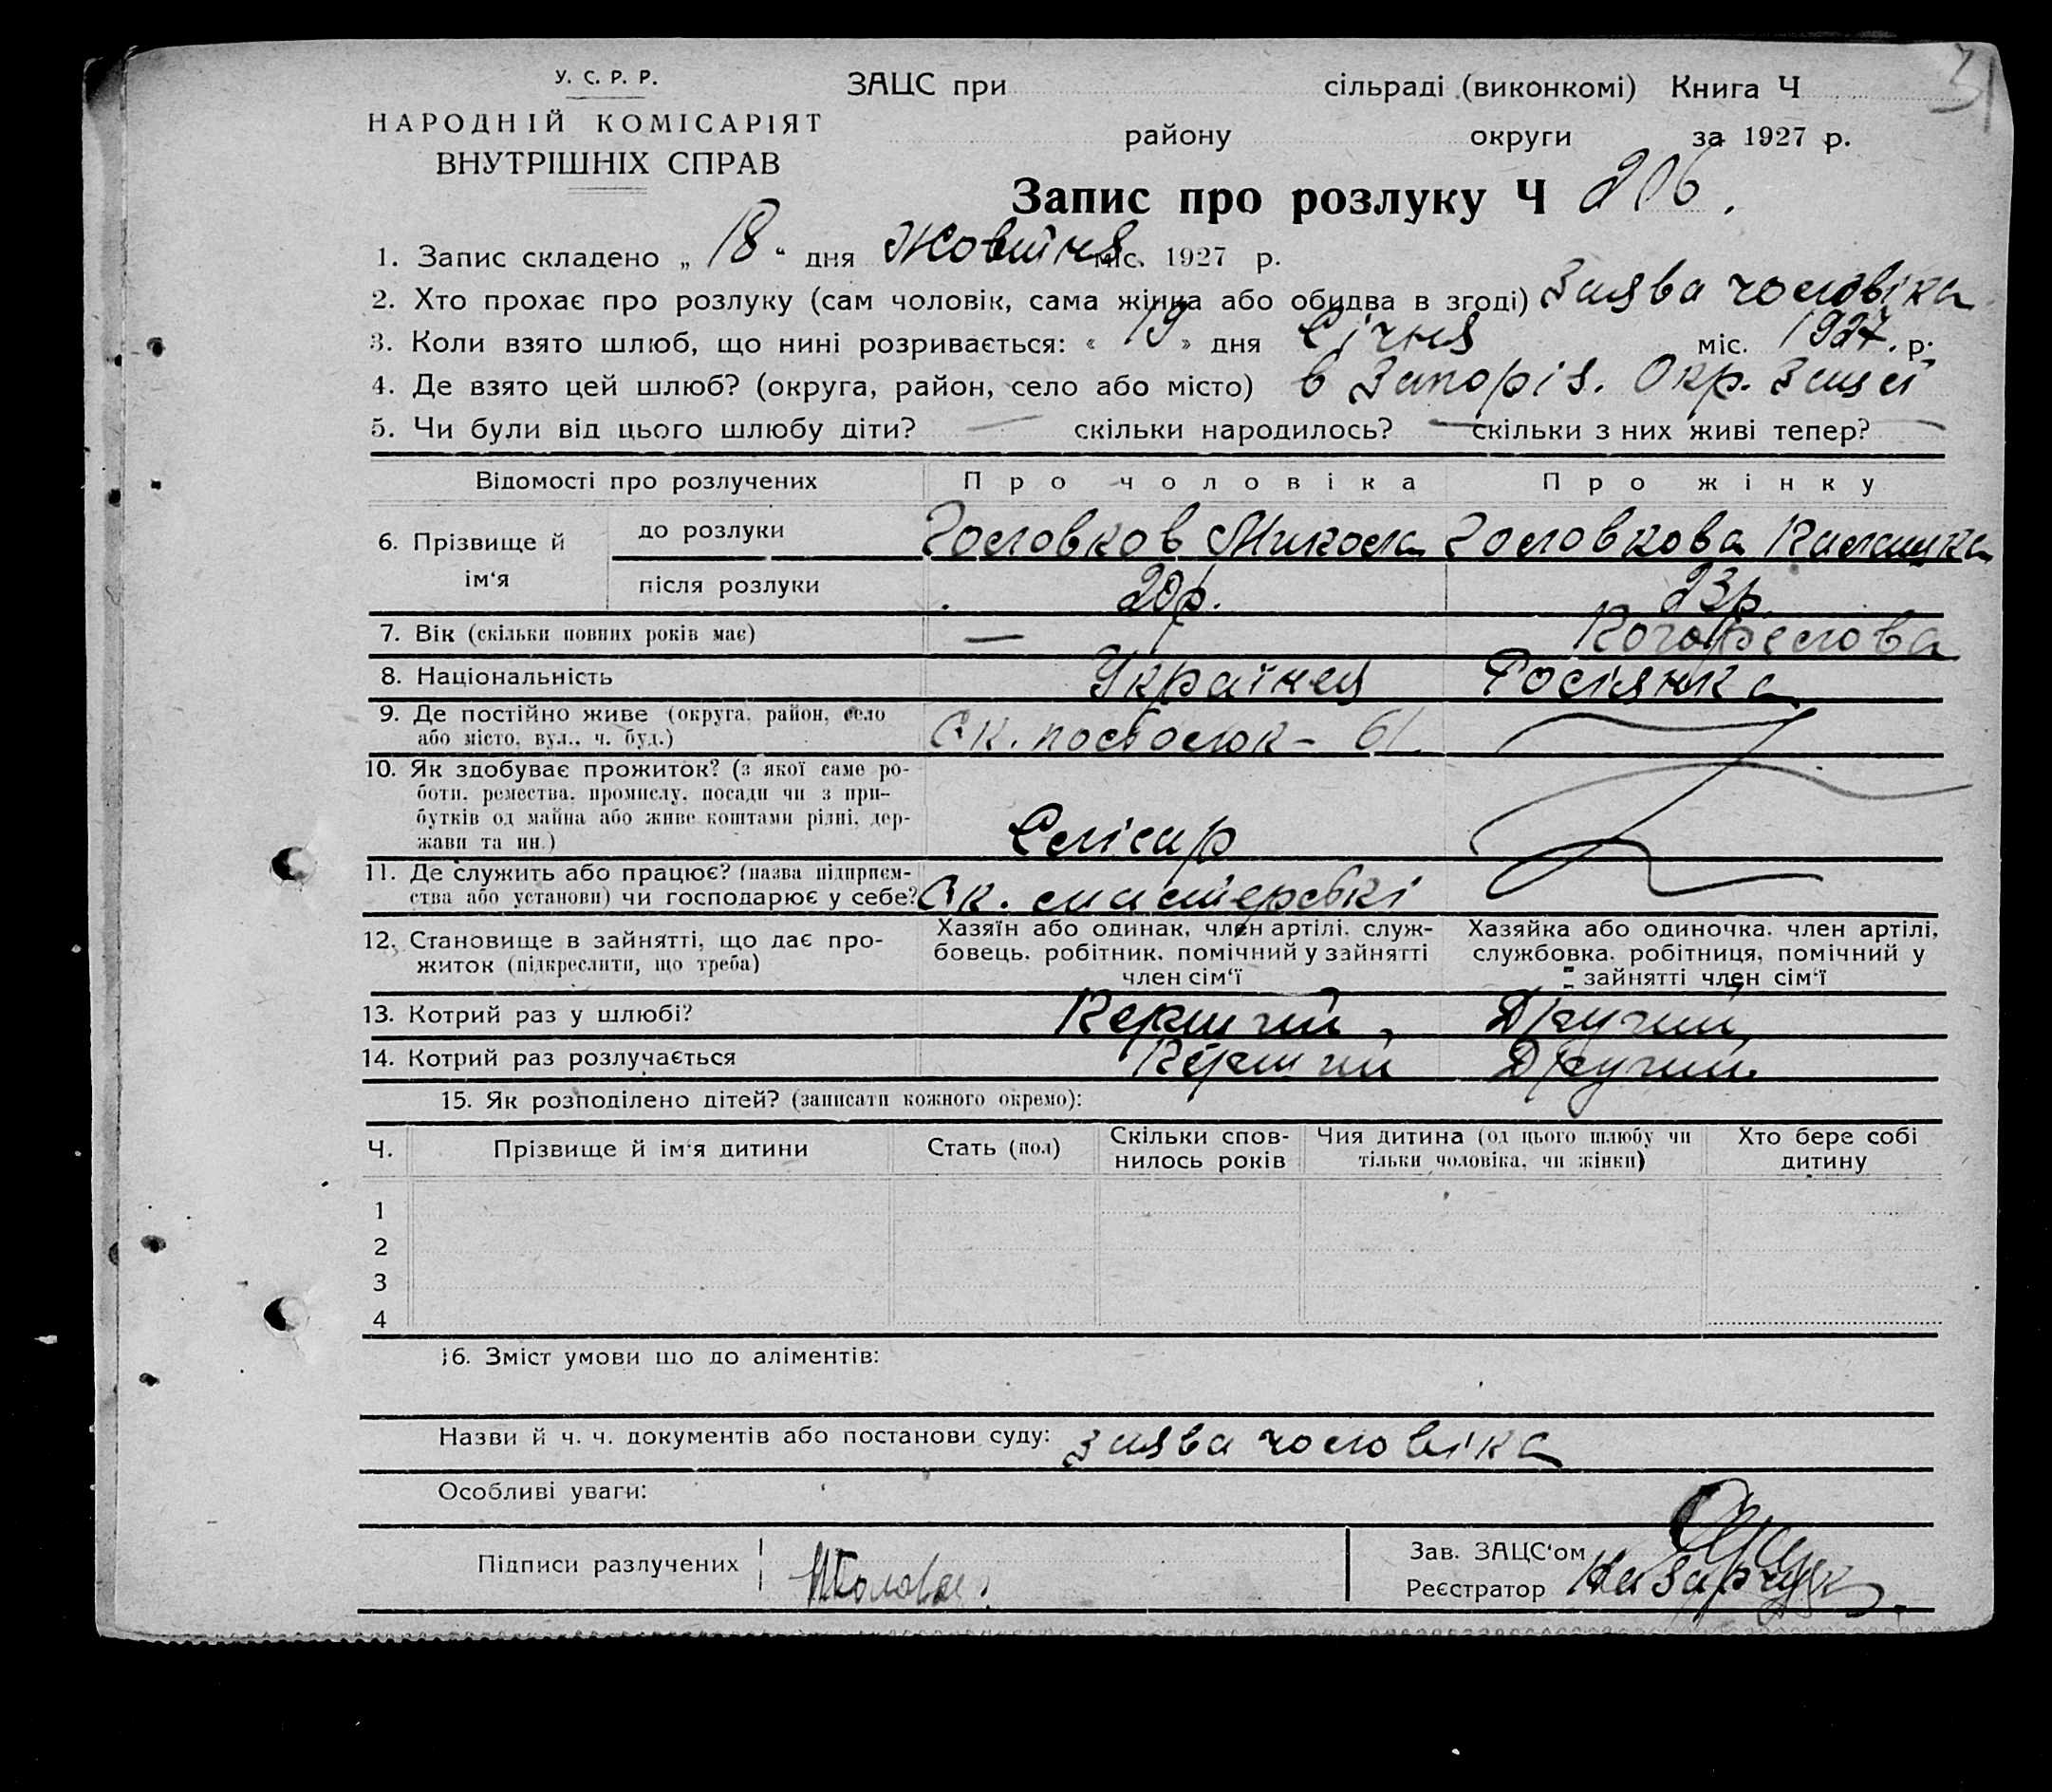 У. С. Р. Р.
НАРОДНІЙ КОМІСАРІЯТ
ВНУТРІШНІХ СПРАВ
ЗАЦС при сільраді (виконкомі) Книга Ч
району округи за 1927 р.
Запис про розлуку Ч 206.
1. Запис складено „18“ дня Жовтня міс. 1927 р.
2. Хто прохає про розлуку (сам чоловік, сама жінка або обидва в згоді) Заява чоловіка
3. Коли взято шлюб, що нині розривається: « 19 » дня Січня міс. 1927. р.
4. Де взято цей шлюб? (округа, район, село або місто) в Запоріз. Окр. Зацсі
5. Чи були від цього шлюбу діти? — скільки народилось? — скільки з них живі тепер? —
Відомості про розлучених Про чоловіка Про жінку
6. Прізвище й ім‘я до розлуки Головков Микола Головкова
після розлуки 20р. 23р.
7. Вік (скільки повних років має) —
8. Національність Українець Росіянка
9. Де постійно живе (округа, район, село
або місто, вул., ч. буд.) 61.
10. Як здобуває прожиток? (з якої саме ро-
боти, ремества, промислу, посади чи з при-
бутків од майна або живе коштами рідні, дер-
жави та ин.) Слісар
11. Де служить або працює? (назва підприєм-
ства або установи) чи господарює у себе? Ск. мастерські
12. Становище в зайнятті, що дає про-
житок (підкреслити, що треба)
Хазяїн або одинак, член артілі, служ-
бовець, робітник, помічний у зайнятті
член сім‘ї
Хазяйка або одиночка, член артілі,
службовка, робітниця, помічний у
зайнятті член сім‘ї
13. Котрий раз у шлюбі? Перший, Другий
14. Котрий раз розлучається Перший Другий.
15. Як розподілено дітей? (записати кожного окремо):
Ч. Прізвище й ім‘я дитини Стать (пол) Скільки спов-
нилось років Чия дитина (од цього шлюбу чи
тільки чоловіка, чи жінки) Хто бере собі
дитину
1
2
3
4
16. Зміст умови що до аліментів:
Назви й ч. ч. документів або постанови суду: заява чоловіка
Особливі уваги:
Підписи разлучених
Зав. ЗАЦС‘ом
Реєстратор Назарчук